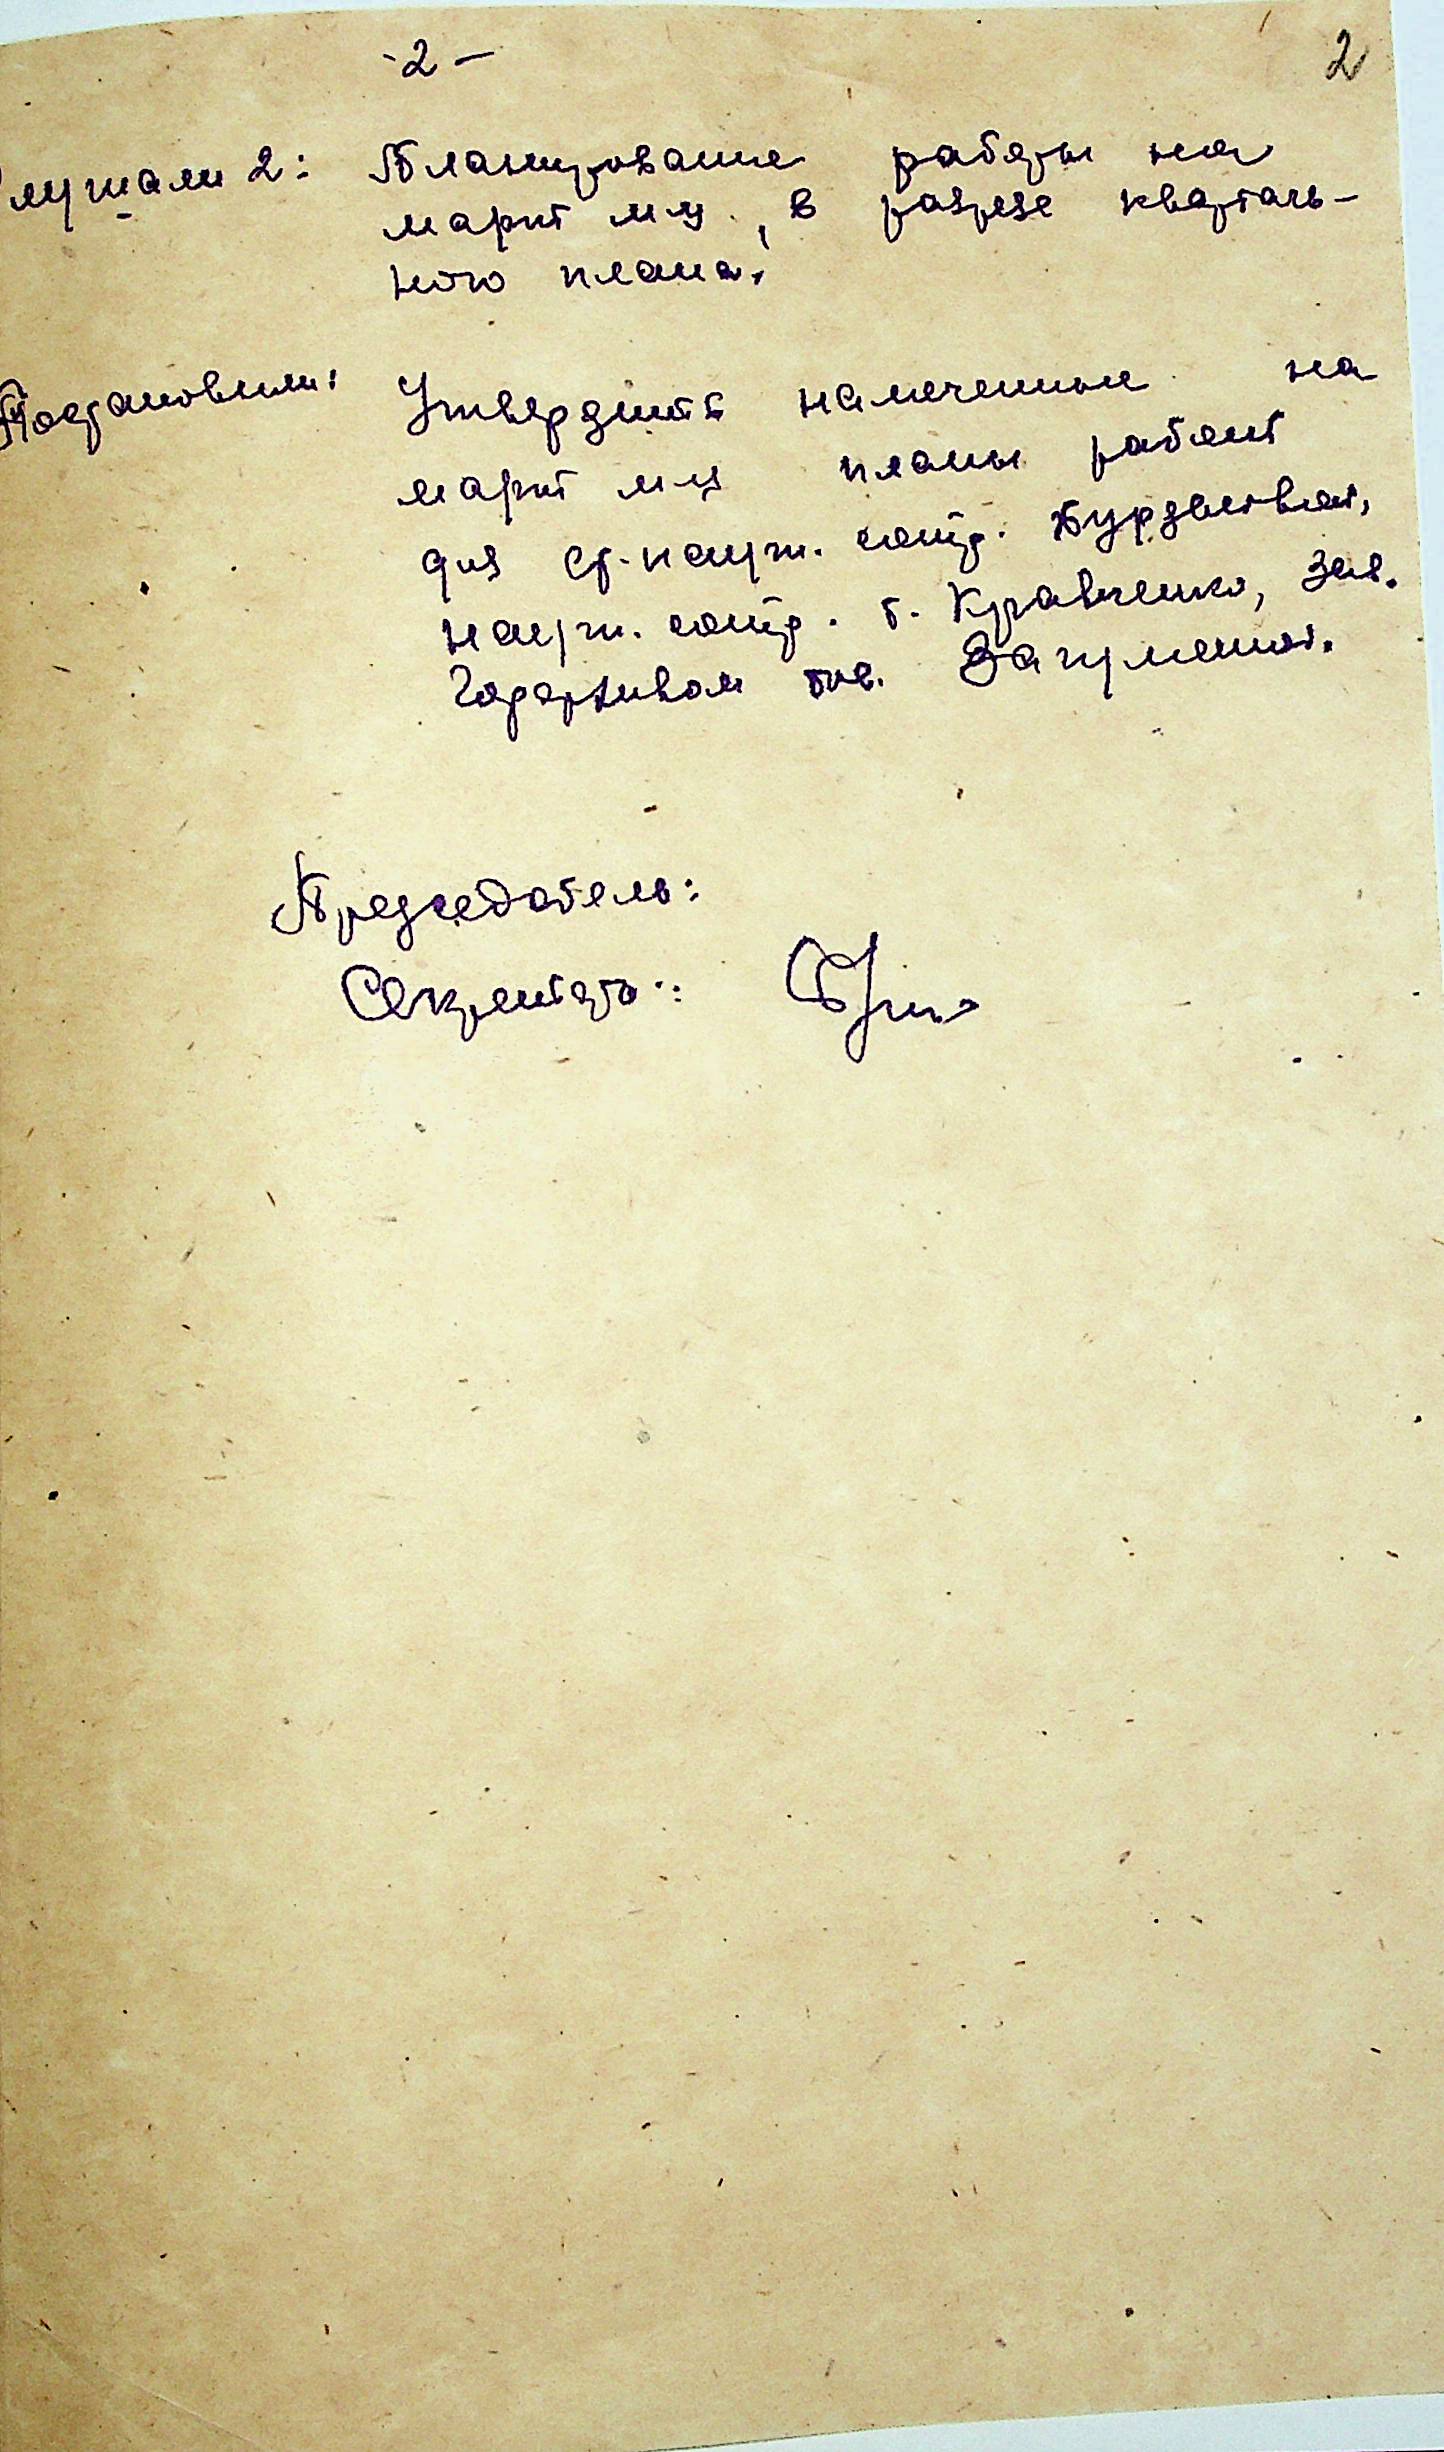 -2-
2
лушали 2: Планирование работы на
март м-ц, в разрезе кварталь-
ного плана.
Постановили: Утвердить намеченные на
март м-ц планы работ
для ст. научн. сотр.
научн. сотр. т. Кравченко, зав.
Горархивом тов.
Председатель:
Секретарь: